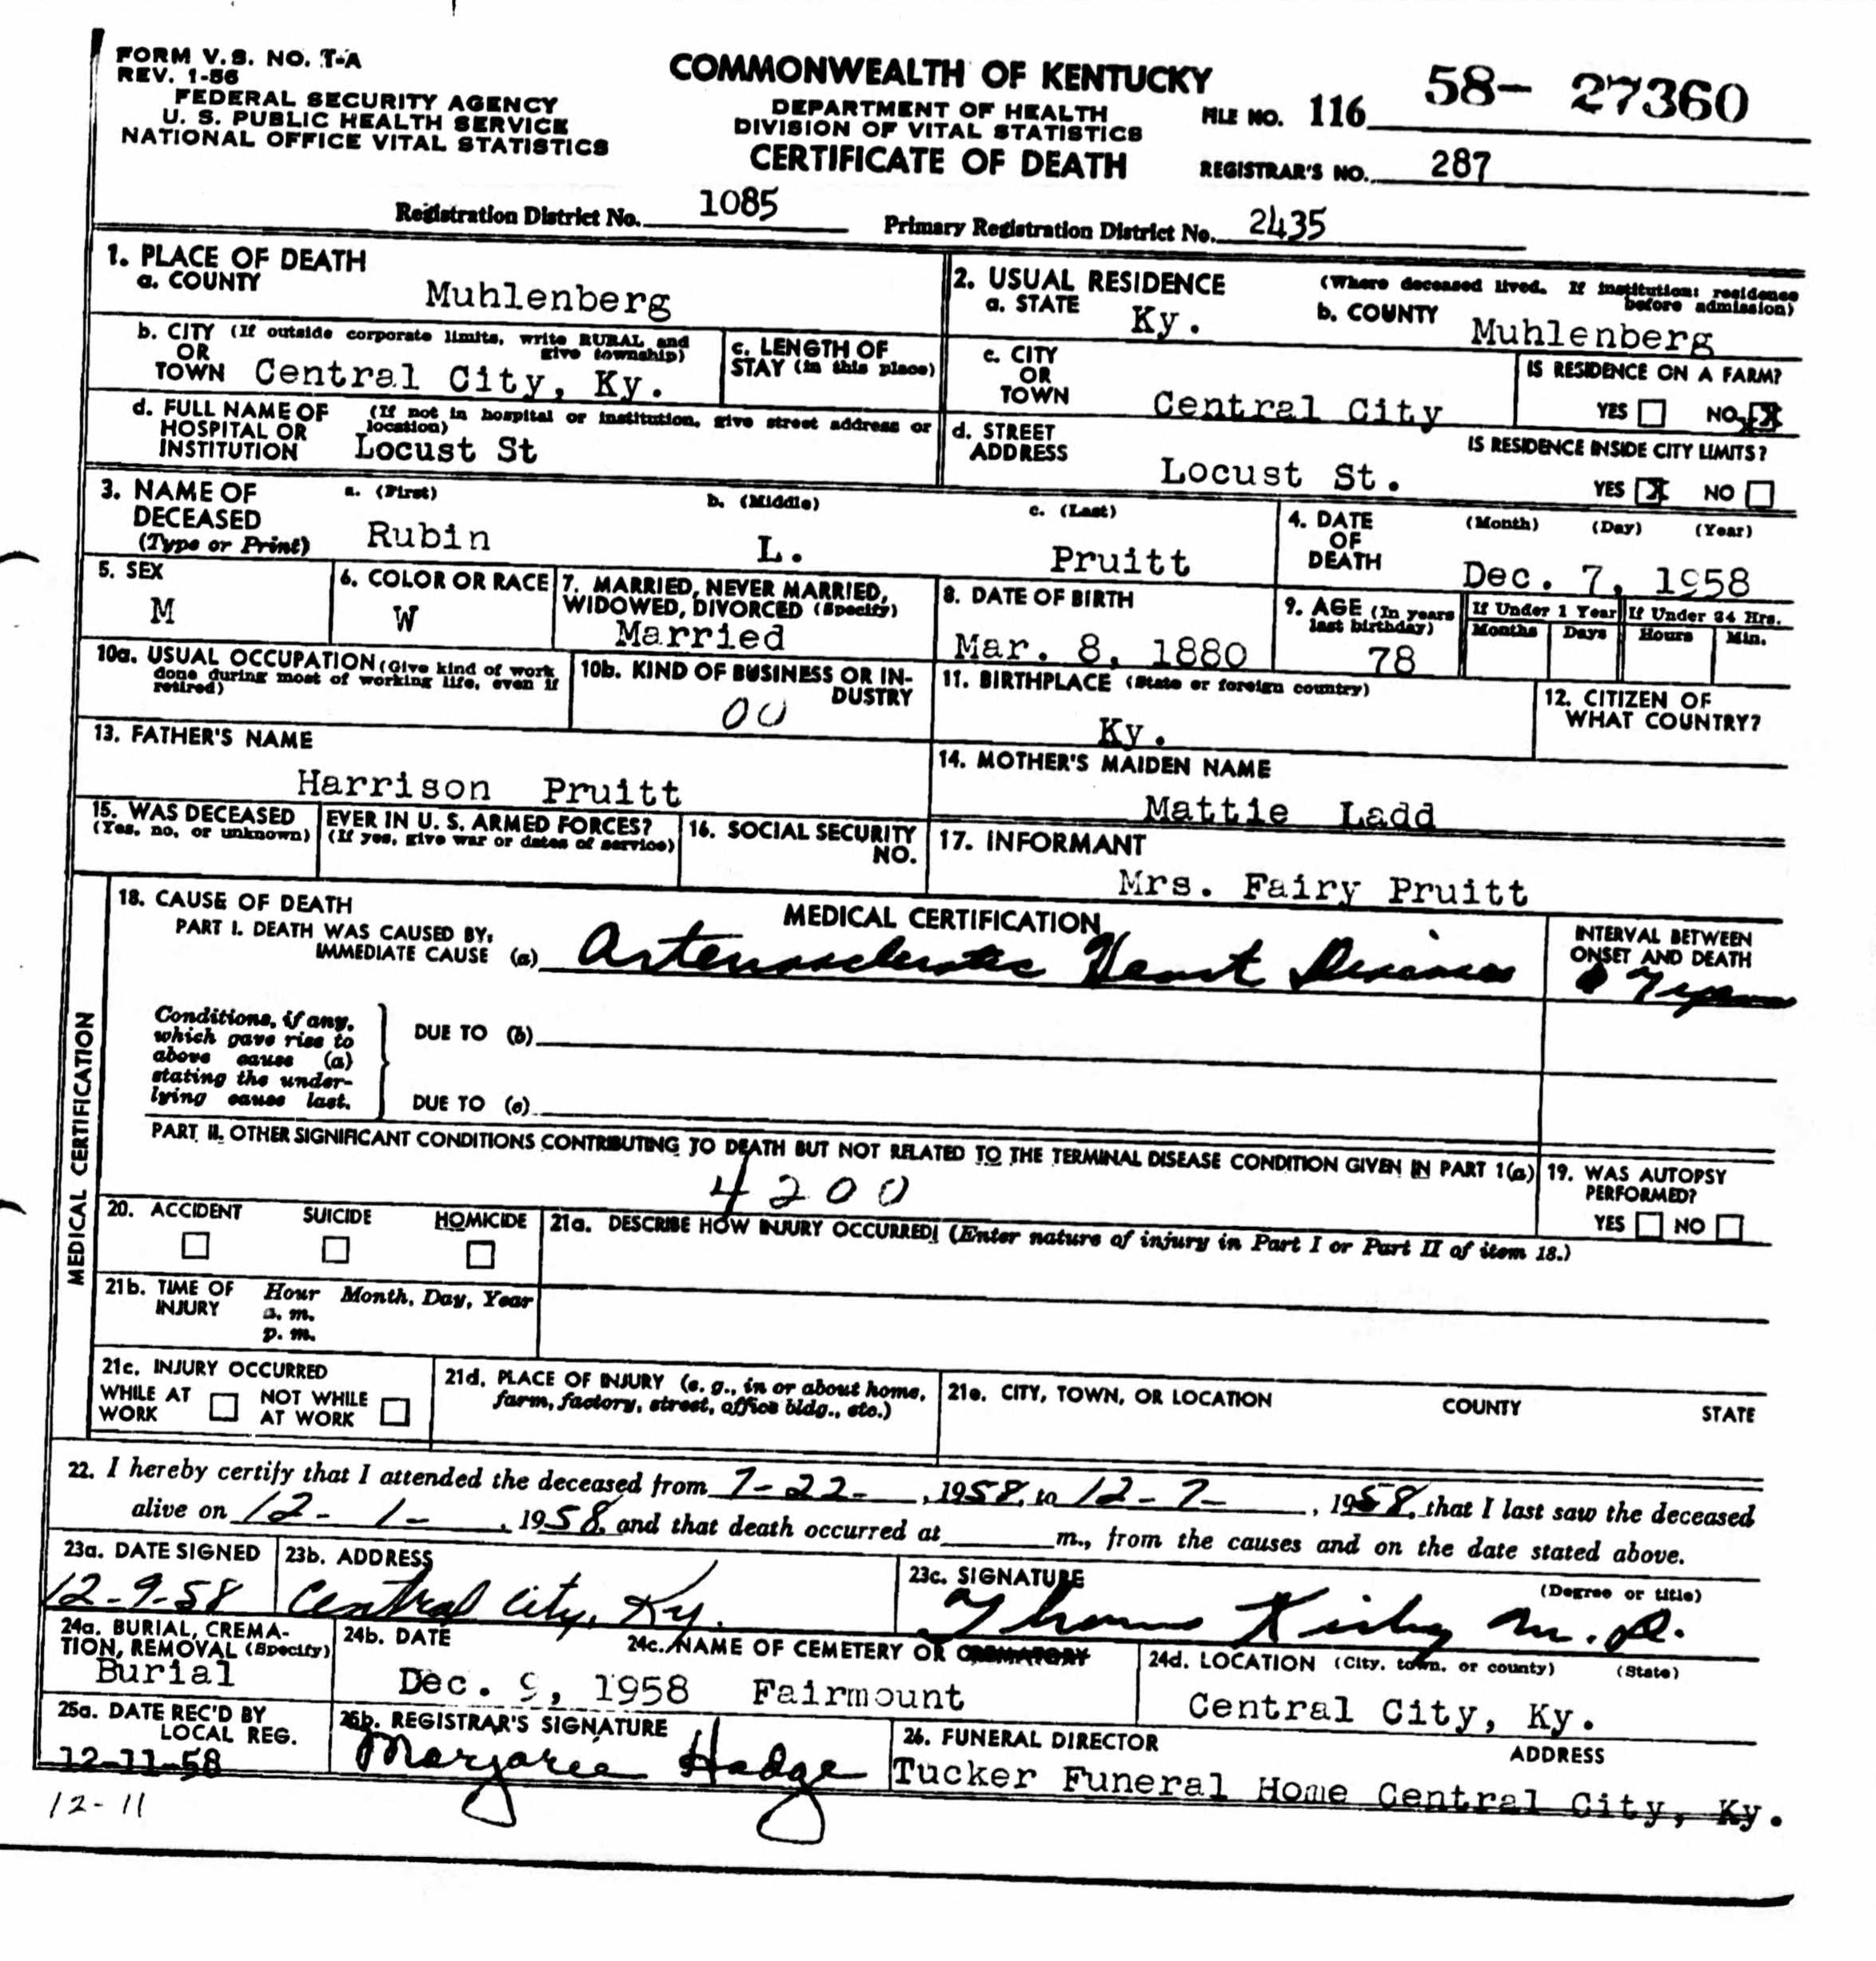 FORM V. S. NO. 1-A
REV. 1-56
FEDERAL SECURITY AGENCY
U. S. PUBLIC HEALTH SERVICE
NATIONAL OFFICE VITAL STATISTICS
COMMONWEALTH OF KENTUCKY
DEPARTMENT OF HEALTH
DIVISION OF VITAL STATISTICS
CERTIFICATE OF DEATH
FILE NO. 116 58- 27360
REGISTRAR'S NO. 287
Registration District No. 1085 Primary Registration District No. 2435
1. PLACE OF DEATH
a. COUNTY Muhlenberg
b. CITY (If outside corporate limits, write RURAL and give township)
OR
TOWN Central City, Ky.
c. LENGTH OF
STAY (in this place)
d. FULL NAME OF (If not in hospital or institution, give street address or location)
HOSPITAL OR
INSTITUTION Locust St
2. USUAL RESIDENCE (Where deceased lived. If institution: residence before admission)
a. STATE Ky. b. COUNTY Muhlenberg
c. CITY
OR
TOWN Central City
IS RESIDENCE ON A FARM?
YES NO X
d. STREET
ADDRESS Locust St.
IS RESIDENCE INSIDE CITY LIMITS?
YES X NO
3. NAME OF
DECEASED
(Type or Print)
a. (First) b. (Middle) c. (Last)
Rubin L. Pruitt
4. DATE
OF
DEATH
(Month) (Day) (Year)
Dec. 7, 1958
5. SEX
M
6. COLOR OR RACE
W
7. MARRIED, NEVER MARRIED,
WIDOWED, DIVORCED (Specify)
Married
8. DATE OF BIRTH
Mar. 8, 1880
9. AGE (In years last birthday)
78
If Under 1 Year If Under 24 Hrs.
Months Days Hours Min.
10a. USUAL OCCUPATION (Give kind of work
done during most of working life, even if
retired)
10b. KIND OF BUSINESS OR IN-
DUSTRY
00
11. BIRTHPLACE (State or foreign country)
Ky.
12. CITIZEN OF
WHAT COUNTRY?
13. FATHER'S NAME
Harrison Pruitt
14. MOTHER'S MAIDEN NAME
Mattie Ladd
15. WAS DECEASED EVER IN U. S. ARMED FORCES?
(Yes, no, or unknown) (If yes, give war or dates of service)
16. SOCIAL SECURITY
NO.
17. INFORMANT
Mrs. Fairy Pruitt
MEDICAL CERTIFICATION
18. CAUSE OF DEATH
MEDICAL CERTIFICATION
PART I. DEATH WAS CAUSED BY:
IMMEDIATE CAUSE (a) Arteriosclerotic Heart Disease
INTERVAL BETWEEN
ONSET AND DEATH
Conditions, if any,
which gave rise to
above cause (a)
stating the under-
lying cause last.
DUE TO (b)
DUE TO (c)
PART II. OTHER SIGNIFICANT CONDITIONS CONTRIBUTING TO DEATH BUT NOT RELATED TO THE TERMINAL DISEASE CONDITION GIVEN IN PART 1(a)
4200
19. WAS AUTOPSY
PERFORMED?
YES NO
20. ACCIDENT SUICIDE HOMICIDE
21a. DESCRIBE HOW INJURY OCCURRED! (Enter nature of injury in Part I or Part II of item 18.)
21b. TIME OF Hour Month, Day, Year
INJURY a. m.
p. m.
21c. INJURY OCCURRED
WHILE AT NOT WHILE
WORK AT WORK
21d. PLACE OF INJURY (e. g., in or about home,
farm, factory, street, office bldg., etc.)
21e. CITY, TOWN, OR LOCATION COUNTY STATE
22. I hereby certify that I attended the deceased from 7-22-, 1958, to 12-7-, 1958, that I last saw the deceased
alive on 12-1-, 1958, and that death occurred at m., from the causes and on the date stated above.
23a. DATE SIGNED
12-9-58
23b. ADDRESS
Central City, Ky.
23c. SIGNATURE (Degree or title)
Thomas Kirby M.D.
24a. BURIAL, CREMA-
TION, REMOVAL (Specify)
Burial
24b. DATE
Dec. 9, 1958
24c. NAME OF CEMETERY OR CREMATORY
Fairmount
24d. LOCATION (City, town, or county) (State)
Central City, Ky.
25a. DATE REC'D BY
LOCAL REG.
12-11-58
25b. REGISTRAR'S SIGNATURE
Marjorie Hodge
26. FUNERAL DIRECTOR ADDRESS
Tucker Funeral Home Central City, Ky.
12-11